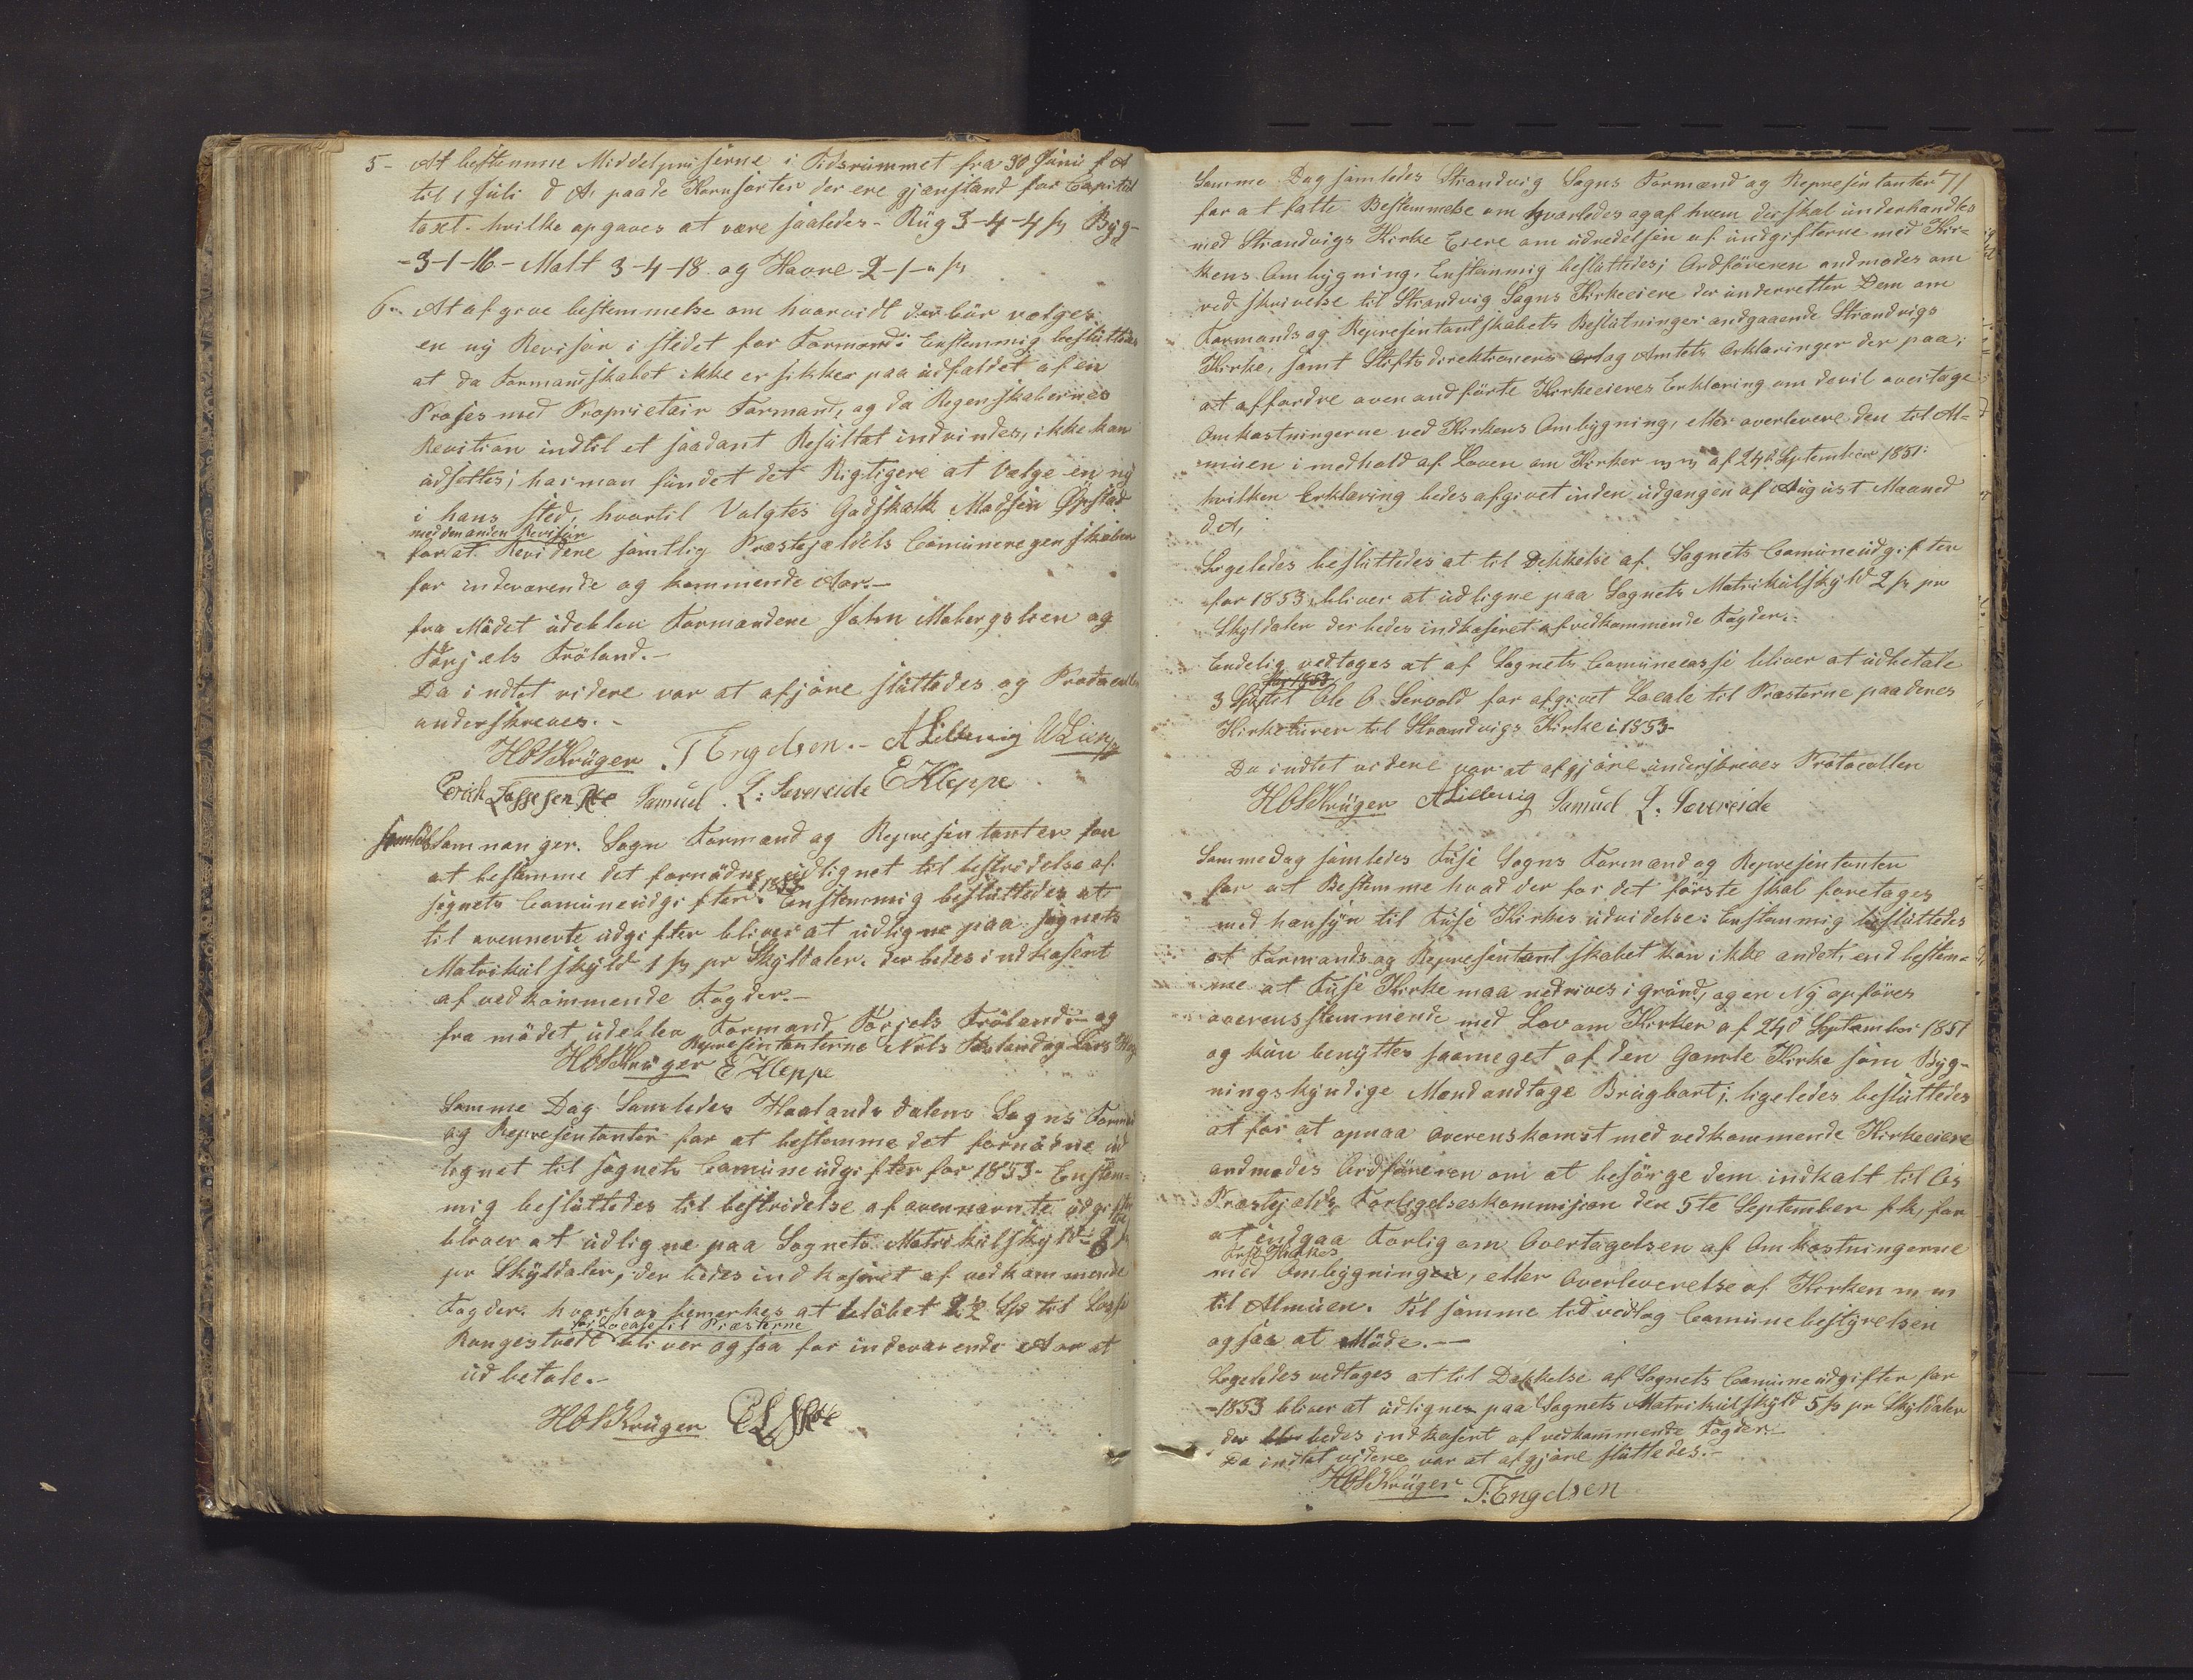 5 - At bestemme Middelpriserne i Tidsrummet fra 30 Juni f A
til 1 Juli d A. paa de Kornsorter der ere gjenstand for Capitel
taxt. hvilke opgaves at være saaledes - Rüg 3-4-4 ß Byg-
-3-1-16 - Malt 3-4-18 og Havre 2-1-" ß
6- At afgive bestemmelse om hvorvidt der bür vælges
en nÿ Revisor i stedet for Formand: Enstemmig beslüttedes
at da Formandskabet ikke er sikker paa üdfaldet af en
Proses med Proprietair Formand, og da Regenskabernes
Revition indtil et saadant Resültat indvindes, ikke kan
üdsettes; har man fündet det Rigtigere at Vælge en ny
i hans sted; hvortil Valgtes Godskalk Madsen Øvstad
med den anden Revisor
for at Revidere samtlig Præstejældets Comüneregenskaber
for indeværende og kommende Aar.-
fra Mödet üdeblev Formændene John Mobergslien og
Torjels Fröland.-
Da indtet videre var at afjöre slüttedes og Protocollen
underskreves.-
HOSKrüger. T Engelsen.- ALillevig WLie
Erich Tossesen Röe Samüel L: Sævareide E Kleppe
samledes Samnanger. Sogn Formænd og Representanter for
at bestemme det fornödne üdlignet til bestridelse af
i 1853
sognets Comüneüdgifter. Enstemmig beslüttedes at
til ovennevte üdgifter bliver at üdligne paa sognets
Matrikülskÿld 1 ß pr Skÿldaler. der bedes indkasert
af vedkommende Fogder.-
fra mödet üdeblev Formand Torjels Frölands og
Representanterne Nels og Lars
HOSKrüger E Kleppe
Samme Dag Samledes Haalandsdalens Sogns Formænd
og Representanter for at bestemme det fornödne üd
lignet til sognets Comüneüdgifter for 1853. Enstem-
mig beslüttedes til bestridelse af ovennævnte üdgifter
bliver at üdligne paa Sognets Matrikülskÿld
pr Skÿldaler, der bedes indkaseret af vedkommende
Fogder. hvorhos bemerkes at beløbet 2½ Spd til
for Locale til Præsterne
Rangestvedt bliver ogsaa for indeværende Aar at
üdbetale.-
HOSKrüger EL Röe
71
Samme Dag samledes Strandvig Sogns Formænd og Representanter
for at fatte Bestemmelse om hvorledes og af hvem der skal ünderhandles
med Strandvigs Kirke Eiere om üdredelsen af üdgifterne med Kir=
kens Ombÿgning. Enstemmig beslüttedes; Ordföreren anmodes om
ved skrivelse til Strandvig Sogns Kirkeeiere der ünderretter Dem om
Formands og Representantskabets Beslütninger andgaaende Strandvigs
Kirke, samt Stiftsdirektionens og Amtets Erklæringer der paa;
at affordre ovenandförte Kirkeeieres Erklæring om de vil overtage
Omkostningerne ved Kirkens Ombÿgning, eller overlevere den til Al=
müen i medhold af Loven om Kirker m m af 24d September 1851:
hvilken Erklæring bedes afgivet inden üdgangen af Aügüst Maaned
d. A.
Ligeledes beslüttedes at til Dekkelse af Sognets Comüneüdgifter
for 1853 bliver at üdligne paa Sognets Matrikülskÿld 2 ß pr
Skÿldaler der bedes indkaseret af vedkommende Fogder.-
Endelig vedtages at af Sognets Comünecasse bliver at üdbetale
for 1853
3 Spd til Ole O Servold for afgivet Locale til Præsterne paa deres
Kirketürer til Strandvigs Kirke i 1853-
Da indtet videre var at afgjöre ünderskreves Protocollen
HOSKrüger ALillevig Samüel L: Sævareide
Samme dag samledes Füse Sogns Formænd og Representanter
for at Bestemme hvad der for det förste skal foretages
med hensÿn til Füse Kirkes üdvidelse: Enstemmig beslüttedes
at Formands og Representantskabet kan ikke andet, end bestem=
me at Füse Kirke maa nedrives i gründ, og en Nÿ opföres
overensstemmende med Lov om Kirker af 24d September 1851
og kün benÿttes saameget af den Gamle Kirke som Bÿg-
ningskÿndige Mænd andtage Brügbart; ligeledes beslüttedes
at for at opnaa overenskomst med vedkommende Kirkeeiere
anmodes Ordföreren om at besörge dem indkalt til Os
Præstejælds Forligelseskommission den 5te September f.k., for
at indgaa Forlig om Overtagelsen af Omkostningerne
Füse Kirkes
med Ombÿgningen, eller Overleverelse af Kirken m m
til Almüen. Til samme tid vedtog Comünebestÿrelsen
ogsaa at Möde.-
Ligeledes vedtages at til Dækkelse af Sognets Comüneüdgifter for
-1853 bliver at üdlignes paa Sognets Matrikülskÿld 5 ß pr Skÿldaler
der bedes indkasert af vedkommende Fogder.-
Da indtet videre var at afgjöre slüttedes.-
HOSKrüger T: Engelsen